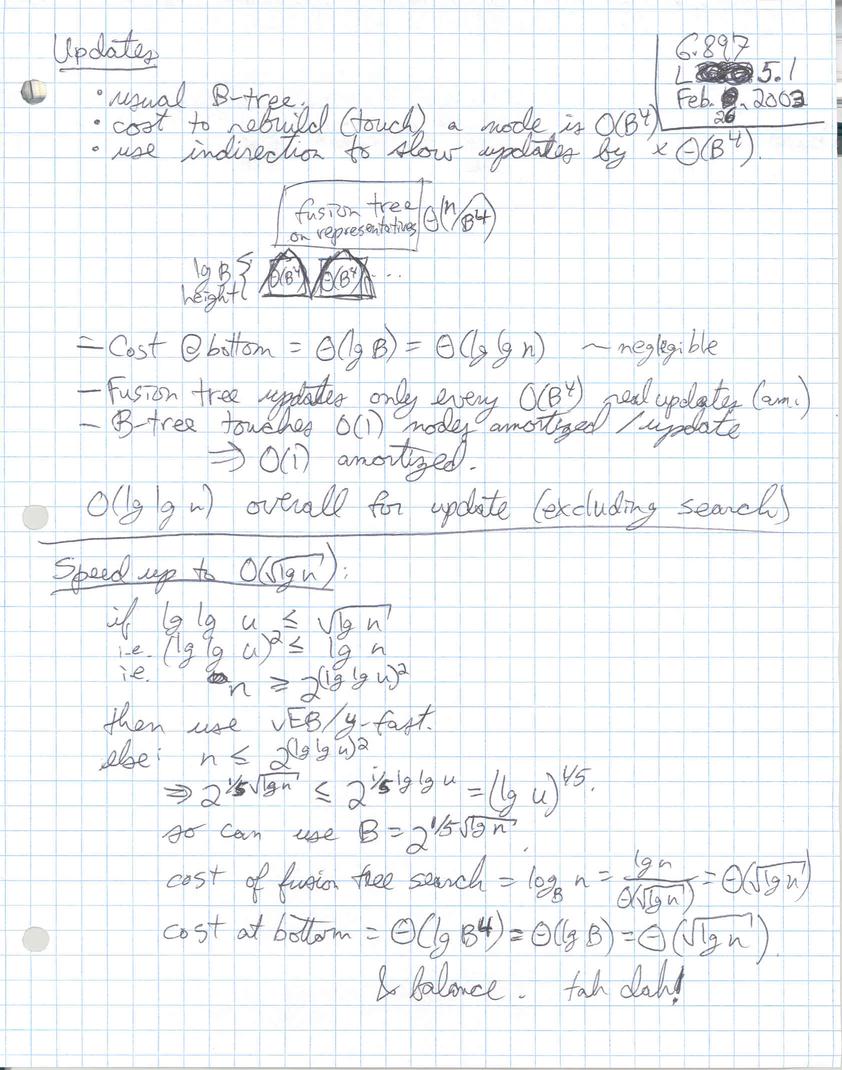 Updates
6.897
L 5.1
Feb. 26, 2003
• usual B-tree.
• cost to rebuild (touch) a node is O(B⁴)
• use indirection to slow updates by × Θ(B⁴).
fusion tree
on representatives
Θ(n/B⁴)
lg B { height
Θ(B⁴) Θ(B⁴) ...
— Cost @ bottom = Θ(lg B) = Θ(lg lg n) ~ negligible
— Fusion tree updates only every O(B⁴) real updates (am.)
— B-tree touches O(1) nodes amortized/update
⇒ O(1) amortized.
O(lg lg n) overall for update (excluding search)
Speed up to O(√lg n):
if lg lg u ≤ √lg n
i.e. (lg lg u)² ≤ lg n
i.e. n ≥ 2^(lg lg u)²
then use vEB/y-fast.
else: n ≤ 2^(lg lg u)²
⇒ 2^(1/5 √lg n) ≤ 2^(1/5 lg lg u) = (lg u)^(1/5).
so can use B = 2^(1/5 √lg n).
cost of fusion tree search = log_B n = lg n / Θ(√lg n) = Θ(√lg n)
cost at bottom = Θ(lg B⁴) = Θ(lg B) = Θ(√lg n)
& balance. tah dah!